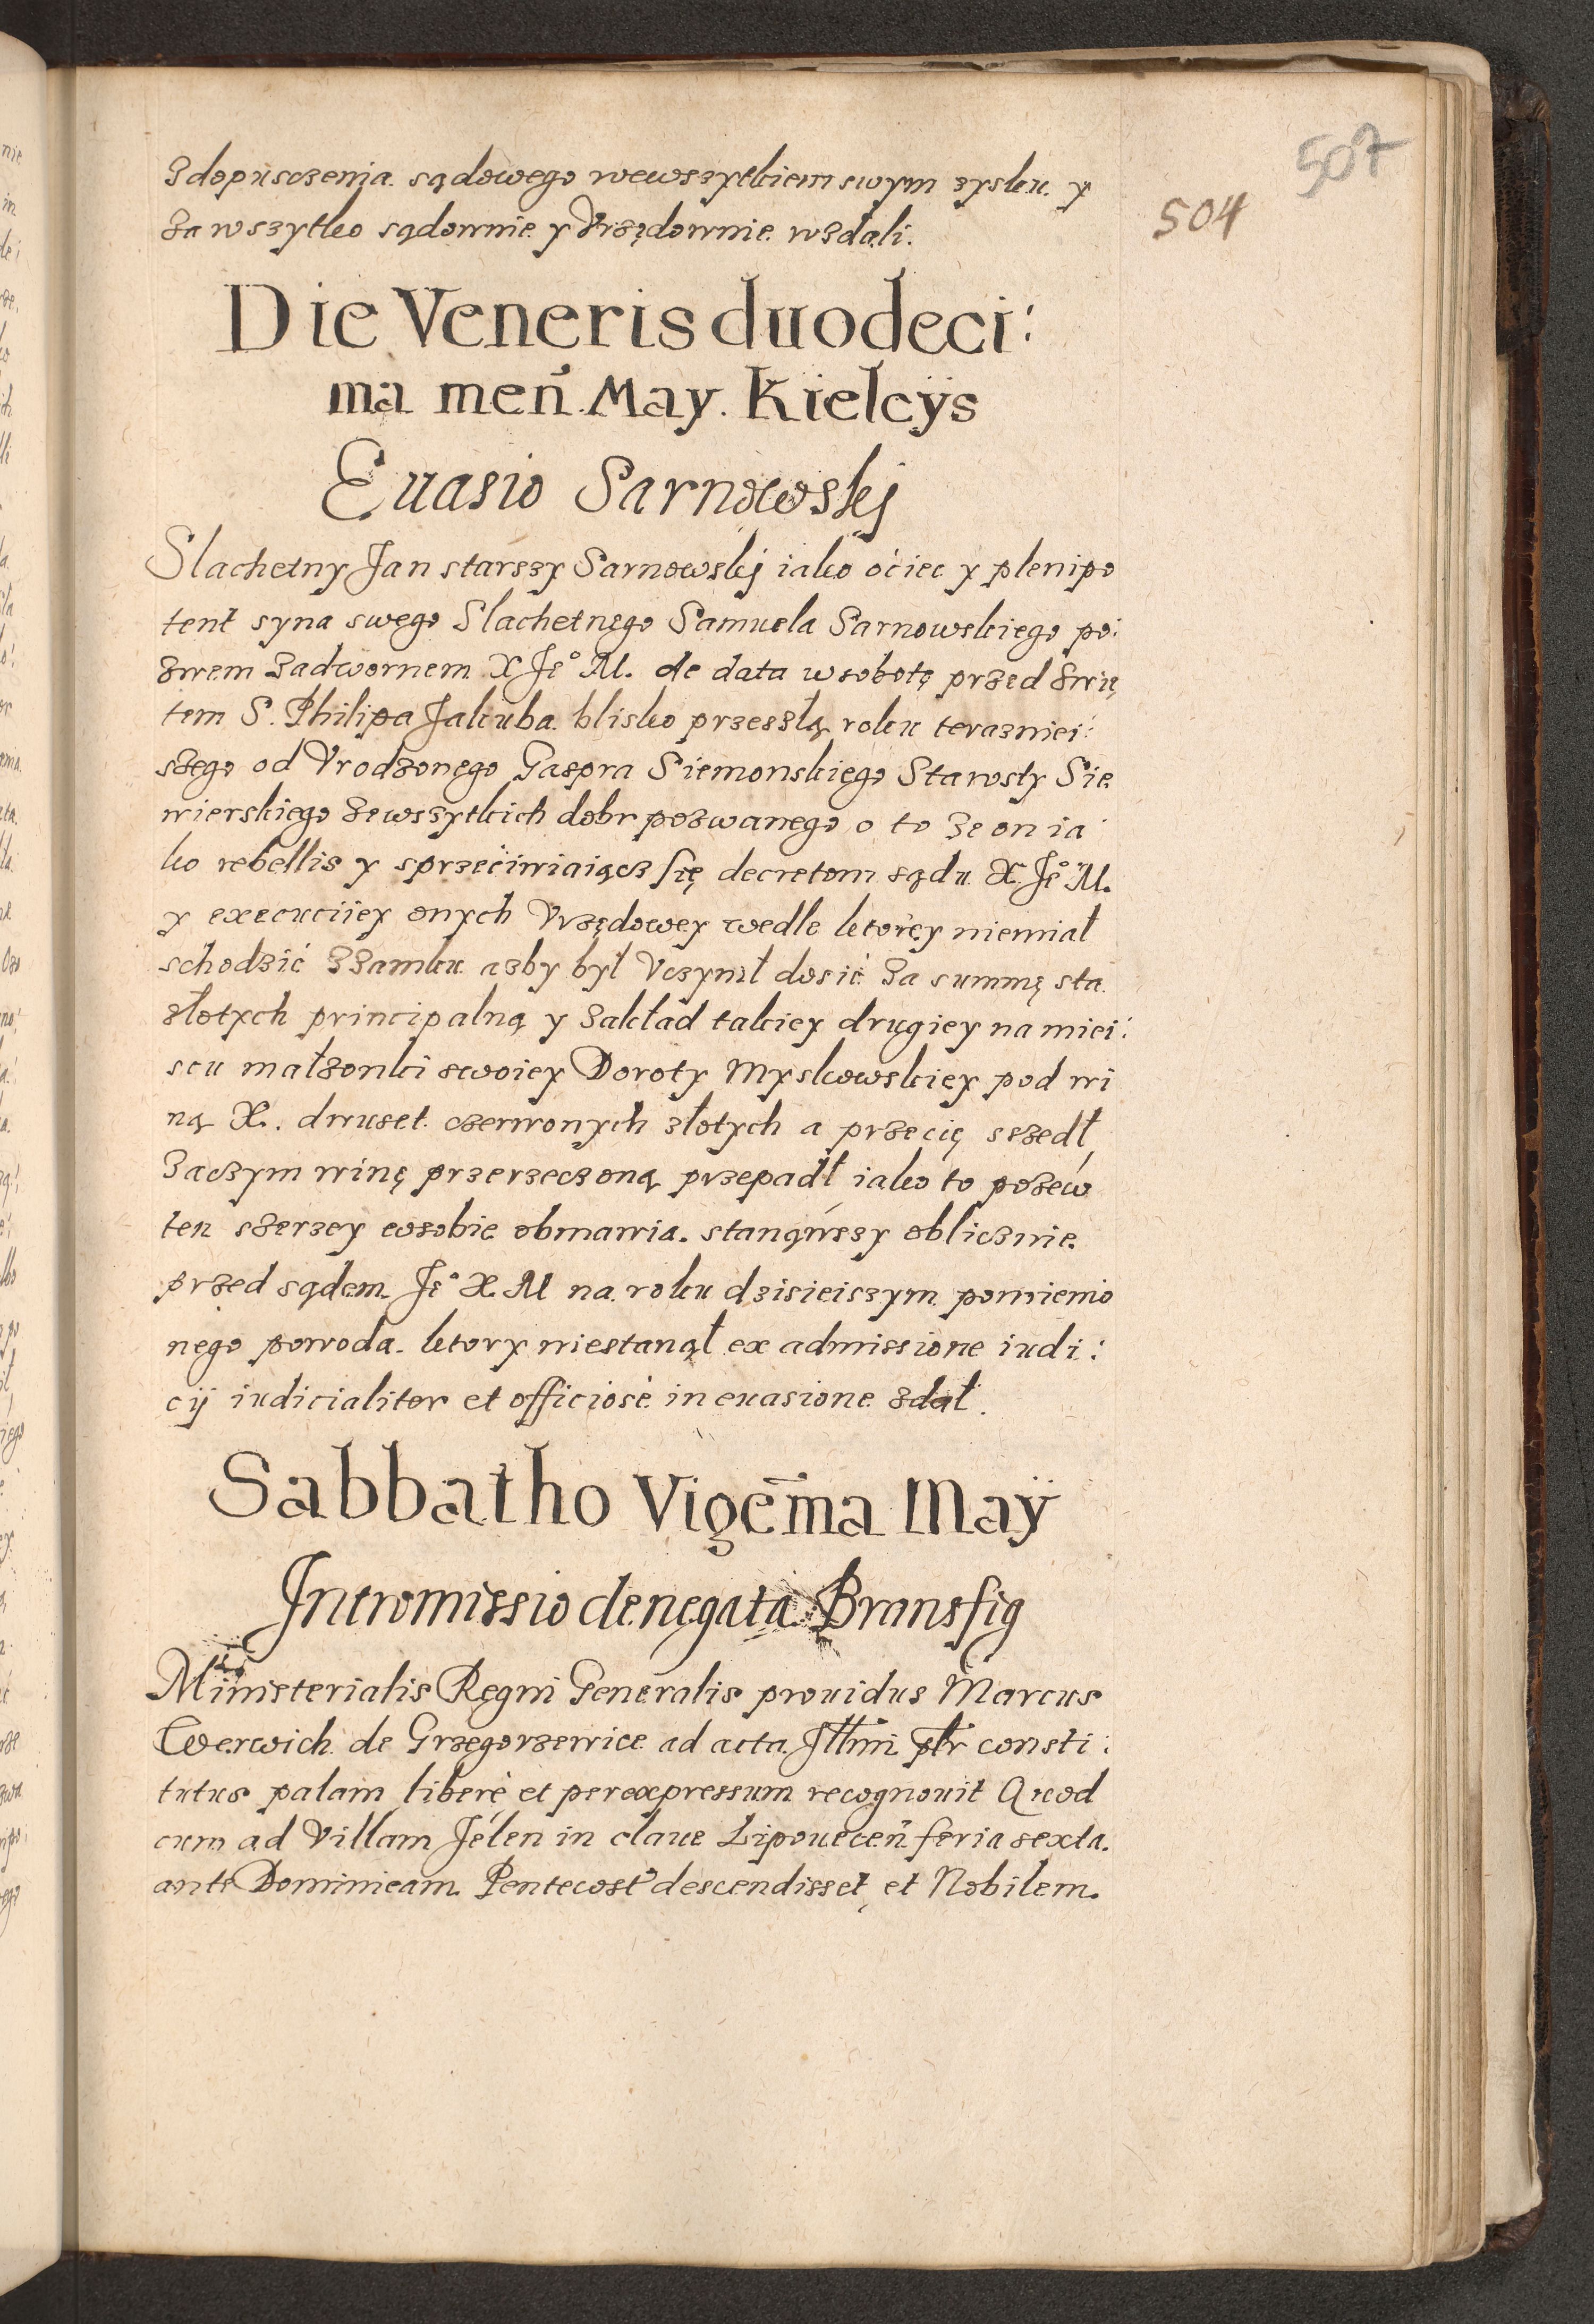 507
504
Zdopusczenia sądowego wewszytkiem swym zysku y
za wszytko sądownie y Vrzędownie wzdali.
Die Veneris duodeci:
ma meñ. May. Kielcÿs
Euasio Sarnowskj
Slachetny Jan starszy Sarnowskj iako ociec y plenipo
tent syna swego Slachetnego Samuela Sarnowskiego po:
zwem zadwornem X Je° M. de data w sobotę przed Swię
tem S. Philipa Jakuba blisko przeszłą roku terazniei:
szego od Vrodzonego Gaspra Siemonskiego Starosty Sie
wierskiego ze wszytkich dobr pozwanego o to ze on ia
ko rebellis y sprzeciwiaiącz się decretom sądu X Je° M.
y execuciiey onych Vrzędowey wedle ktorey niemiał
schodzić z Zamku azby był Vczynił dosić za summę sta
złotych principalną y zakład takiey drugiey na miei:
scu małzonki swoiey Doroty Myskowskiey pod wi
ną X. dwuset czerwonych złotych a przecię szedł
Zaczym winę przerzeczoną przepadł iako to pozew
ten szerzey wsobie obmawia. stanąwszy oblicznie
przed sądem Je° X M na roku dzisieiszym pomienio
nego powoda ktory niestanął ex admissione iudi:
cij iudicialiter et officiosè in euasione zdał.
Sabbatho Vigēma Maÿ
Intromissio denegata Bransfig
Ministerialis Regni Generalis prouidus Marcus
Werwich de Grzegorzewice ad acta Illmi ptr consti:
tutus palam liberè et perexpressum recognouit Quod
cum ad Villam Jélen in claue Lipoueceñ feria sexta
ante Dominicam Pentecost descendisset, et Nobilem